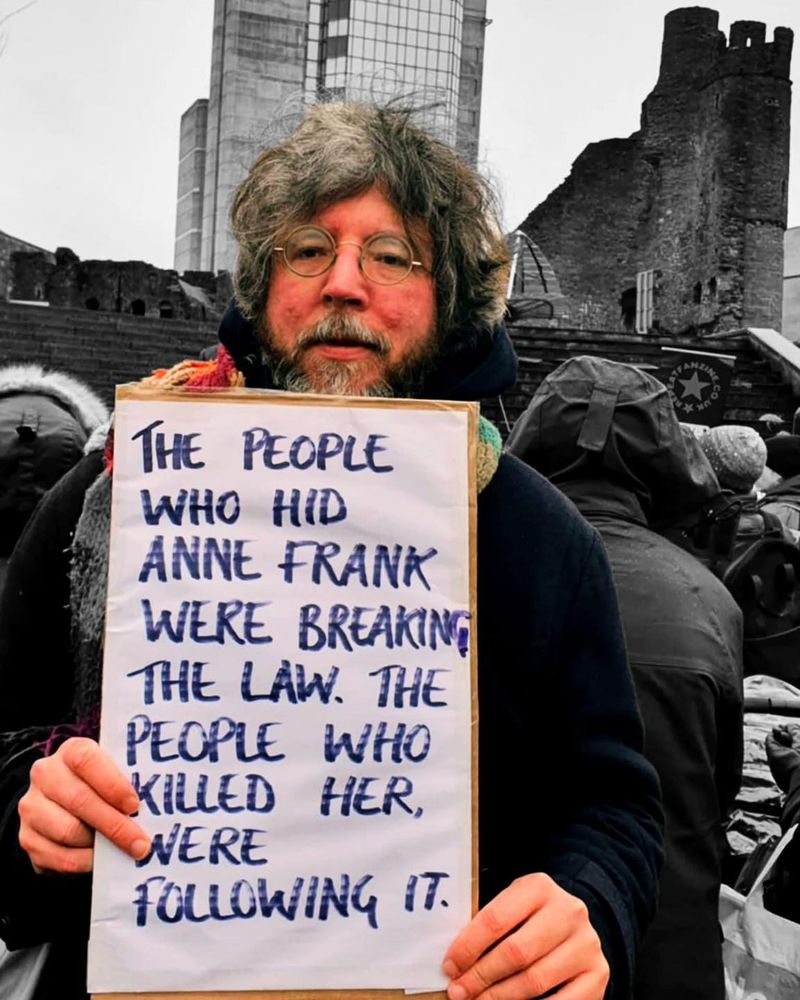 THE PEOPLE
WHO HID
ANNE FRANK
WERE BREAKING
THE LAW. THE
PEOPLE WHO
KILLED HER,
WERE
FOLLOWING IT.